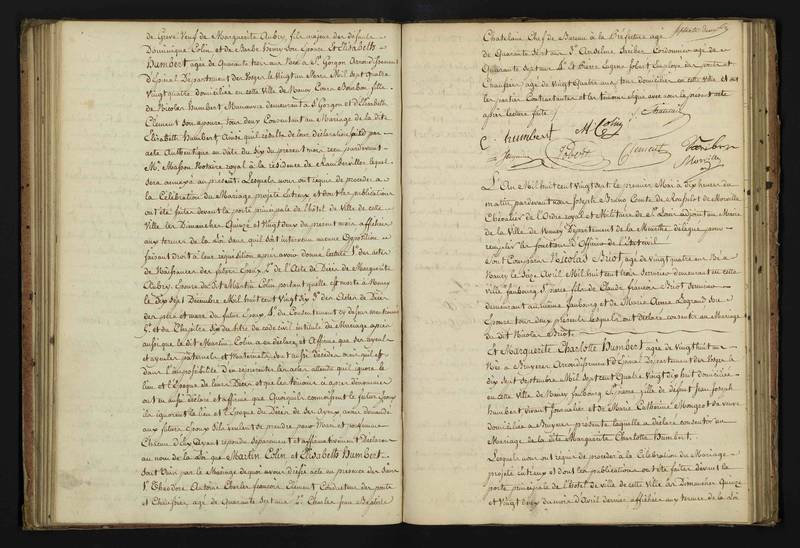 de Greve veuf de Marguerite Aubry, fils majeur des défunts
Dominique Colin et de Barbe Henry son Epouse Et Elisabeth
Humbert agée de Quarante trois ans Née à St. Gorgon Arrondissement
d'Epinal Département des Vosges le Vingt un Mil sept quatre
Vingt quatre domiciliée en cette Ville de Nancy Cours Bourbon fille
de Nicolas Humbert Manœuvre demeurant à St. Gorgon et d'Elisabeth
Clement son épouse, tous deux Consentant au Mariage de la dite
Elisabeth Humbert Ainsi qu'il résulte de leur déclaration faite par
acte Authentique en date du dix du présent mois reçu pardevant
Me. Masson Notaire royal à la résidence de Rambervillers lequel
sera annexé au présent. Lesquels nous ont requis de procéder à
la Célébration du Mariage projetté entr'eux et dont les publications
ont été faites devant la porte principale de l'hôtel de Ville de cette
Ville les Dimanches Quinze et Vingt deux du présent mois affichées
aux termes de la Loi sans qu'il soit intervenu aucune Opposition
faisant Droit à leur réquisition après avoir donné lecture 1°. des actes
de Naissances des futurs Epoux 2°. de l'Acte de Décès de Marguerite
Aubry Epouse du dit Martin Colin portant qu'elle est morte à Nancy
le Dix sept Décembre Mil huit cent Vingt six 3°. des Actes de Décès
des père et mère du futur Epoux 4°. du Consentement cy dessus mentionné
5°. et du Chapitre Six du titre du code civil intitulé du Mariage après
aussi que le dit Martin Colin a déclaré et Affirmé que ses ayeuls
et ayeules paternels et Maternels, sont aussi décédés mais qu'il est
dans l'impossibilité d'en représenter les actes attendu qu'il ignore le
lieu et l'Epoque de leurs Décès et que les témoins ci après dénommés
ont eu aussi déclaré et affirmé que Quoiqu'ils connaissent le futur Epoux
ils ignorent le lieu et l'Epoque du Décès de ses Ayeux avons demandé
aux futurs Epoux s'ils veulent se prendre pour Mari et pour femme
Chacun d'Eux ayant répondu séparément et affirmativement Déclarons
au nom de la Loi que Martin Colin et Elisabeth Humbert
sont Unis par le Mariage de quoi avons dressé acte en présence des Sieurs
1°. Théodore Antoine Charles françois Clement Conducteur des ponts
et Chaussées agé de Quarante sept ans 2°. Charles Jean Baptiste
Chatelain Chef de Bureau à la Préfecture agé
de Quarante sept ans 3°. Anselme Cordonnier agé de
Quarante sept ans 4°. Et Pierre Eugène Lobert Employé des ponts et
Chaussées agé de Vingt Quatre ans tous domiciliés en cette Ville et ont
les parties Contractantes et les témoins signé avec nous le présent acte
après lecture faite
E. humbert M. Colin
Lobert Clement
L'An Mil huit cent Vingt sept le premier Mai à dix heures du
matin pardevant nous Joseph Comte de Morville
Chevalier de l'Ordre royal et Militaire de St. Louis adjoint au Maire
de la Ville de Nancy Département de la Meurthe délégué pour
remplir les fonctions d'Officier de l'Etat civil
Sont Comparus Nicolas Briot agé de Vingt quatre ans Né à
Nancy le Seize Avril Mil huit cent trois Serrurier demeurant en cette
Ville faubourg St. pierre fils de Claude francois Briot
demeurant au même faubourg et de Marie Anne Legrand son
Epouse tous deux présents lesquels ont déclaré consentir au Mariage
du dit Nicolas Briot.
Et Marguerite Charlotte Humbert agée de Vingt huit ans
Née à Bruyeres Arrondissement d'Epinal Département des Vosges le
dix sept Septembre Mil sept cent Quatre Vingt dix huit domiciliée
en cette Ville de Nancy faubourg St. pierre fille de défunt Jean Joseph
humbert Vivant Journalier et de Marie Catherine Mougeot sa veuve
domiciliée à Bruyeres présente laquelle a déclaré consentir au
Mariage de la dite Marguerite Charlotte humbert.
Lesquels nous ont requis de procéder à la Célébration du Mariage
projetté entr'eux et dont les publications ont été faites devant la
porte principale de l'hôtel de ville de cette ville les Dimanches Quinze
et Vingt deux du mois d'Avril dernier affichées aux termes de la Loi